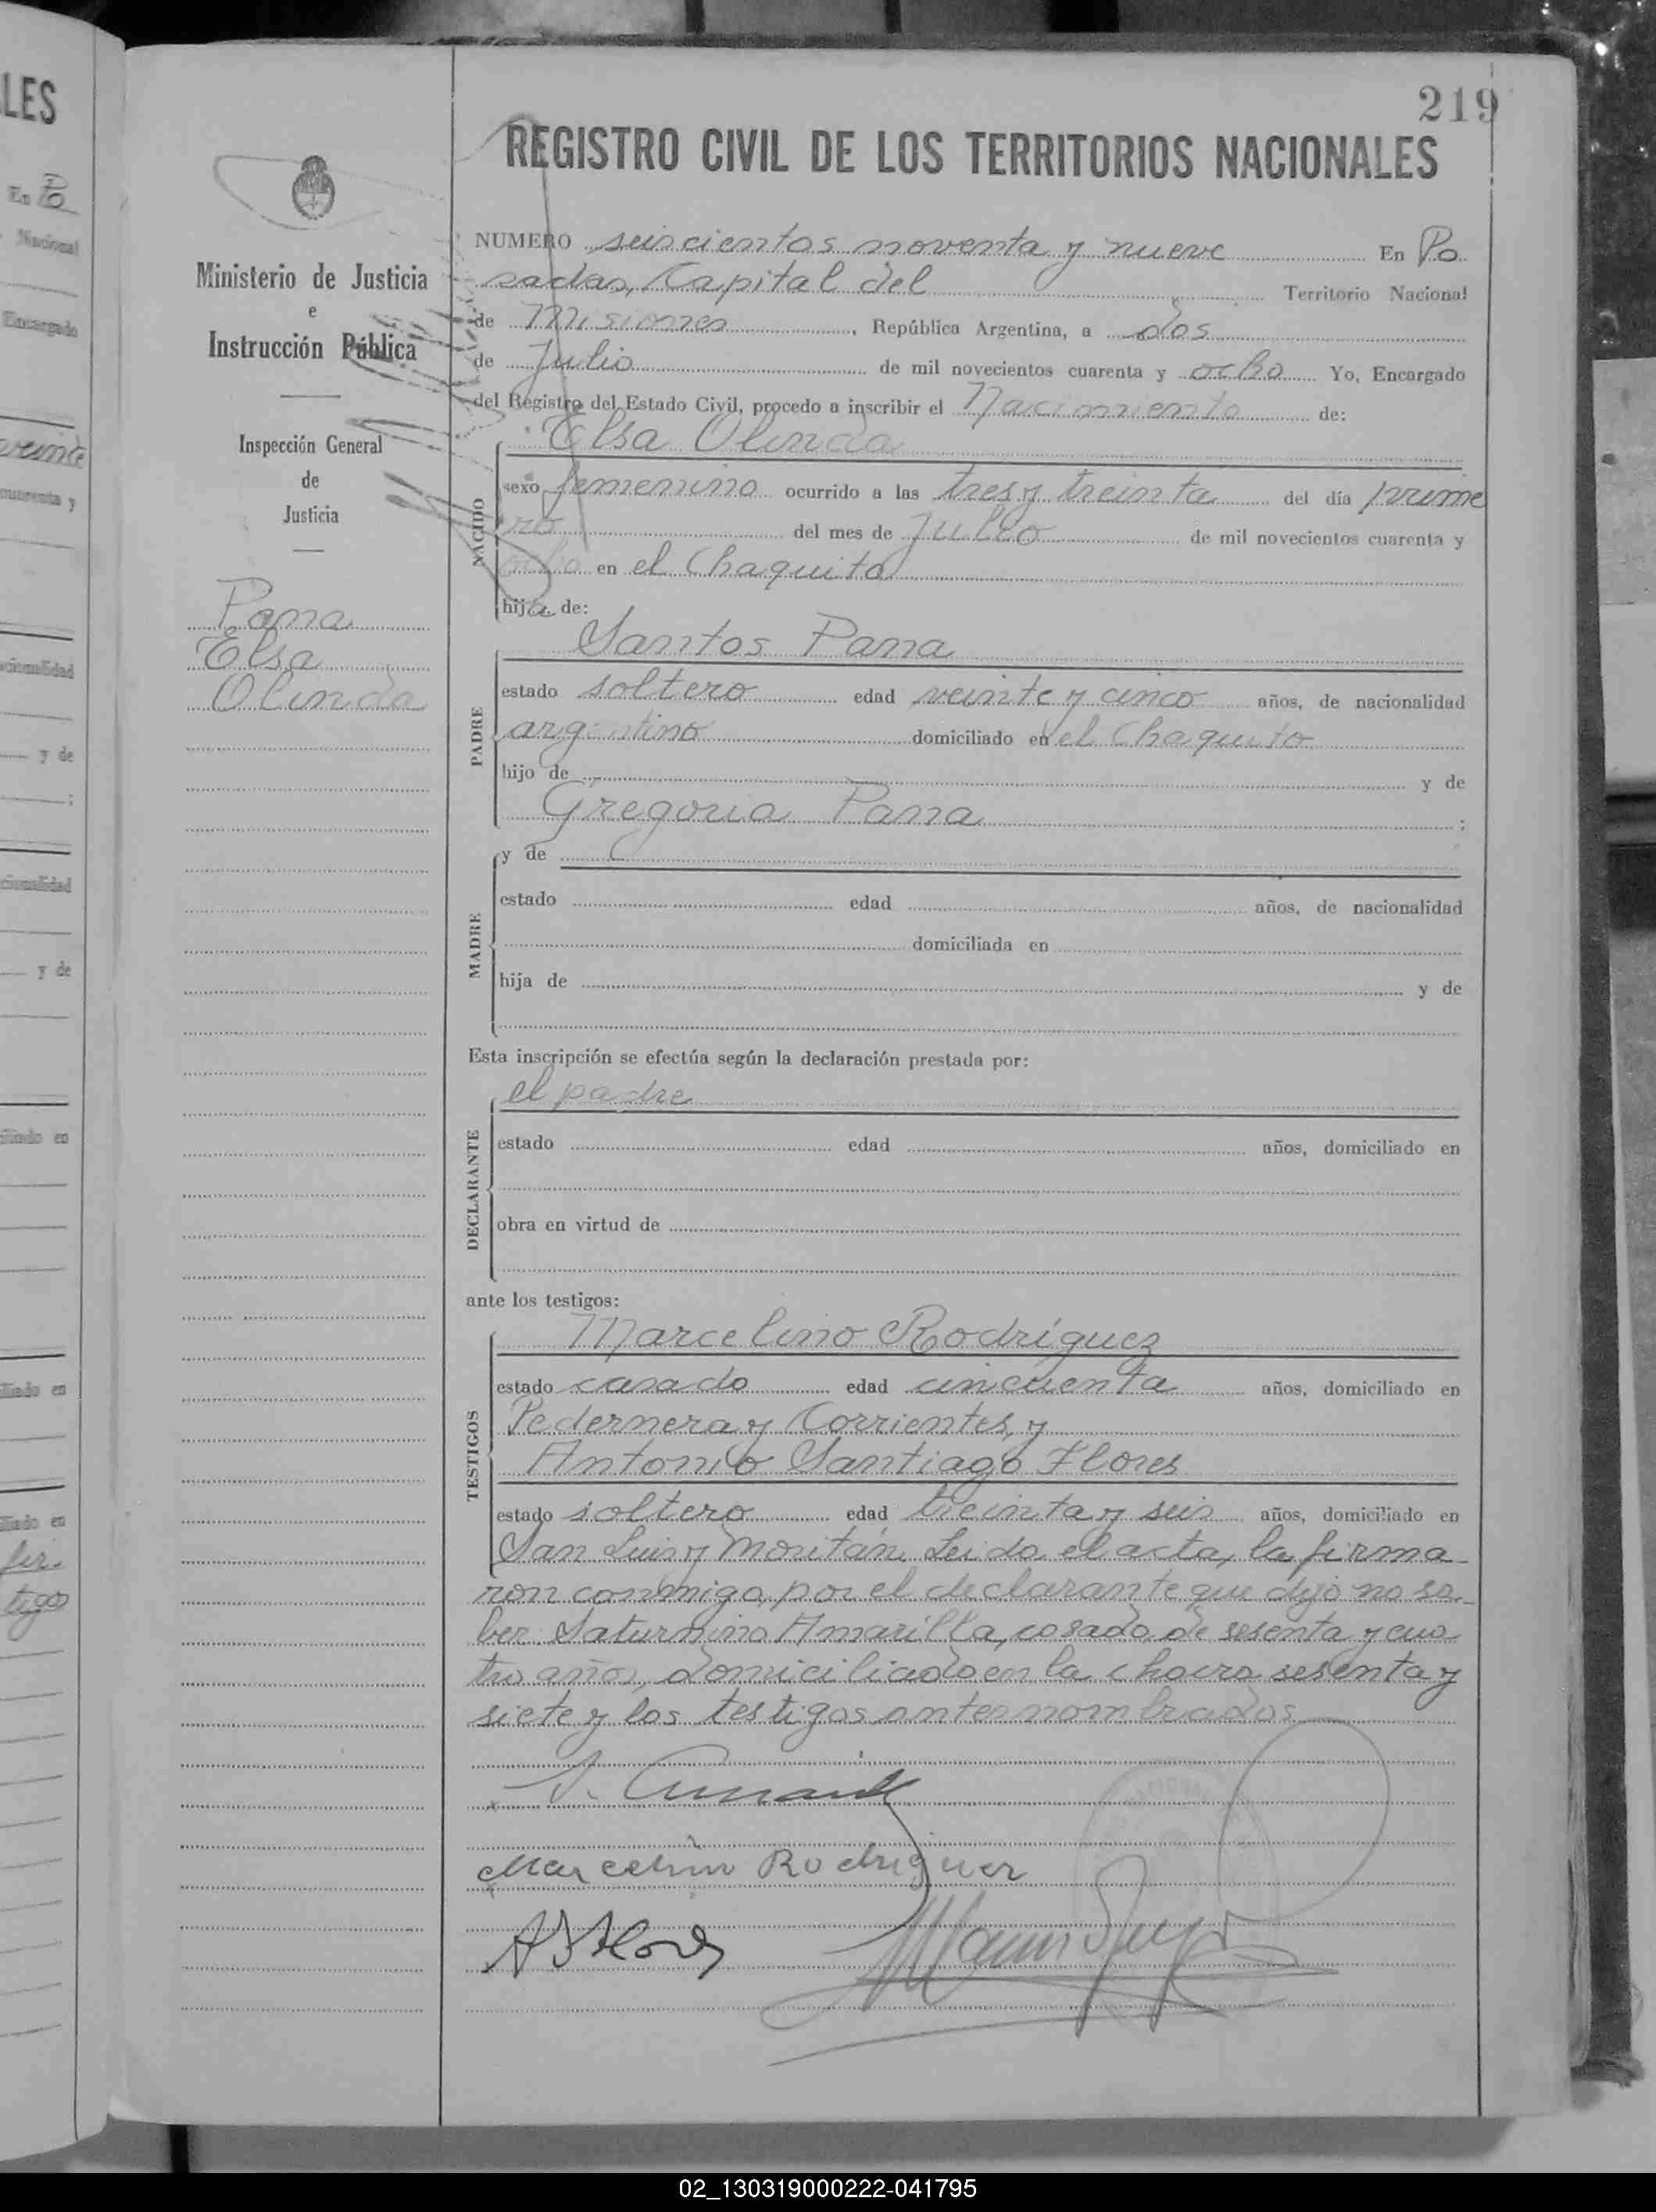 LES
En Po
Nacional
Encargado
veinte
cuarenta y
cionalidad
y de
;
cionalidad
y de
iliado en
iliado en
iliado en
fir-
tigos
219
REGISTRO CIVIL DE LOS TERRITORIOS NACIONALES
Ministerio de Justicia
e
Instrucción Pública
Inspección General
de
Justicia
Pana
Elsa
Olinda
NUMERO seiscientos noventa y nueve En Po
sadas, Capital del Territorio Nacional
de Misiones, República Argentina, a dos
de Julio de mil novecientos cuarenta y ocho Yo, Encargado
del Registro del Estado Civil, procedo a inscribir el Nacimiento de:
Elsa Olinda
NACIDO
sexo femenino ocurrido a las tres y treinta del día prime
ro del mes de Julio de mil novecientos cuarenta y
ocho en el Chaquito
hija de:
Santos Pana
PADRE
estado soltero edad veinte y cinco años, de nacionalidad
argentino domiciliado en el Chaquito
hijo de y de
Gregoria Pana ;
MADRE
y de
estado edad años, de nacionalidad
domiciliada en
hija de y de
Esta inscripción se efectúa según la declaración prestada por:
el padre
DECLARANTE
estado edad años, domiciliado en
obra en virtud de
ante los testigos:
Marcelino Rodríguez
TESTIGOS
estado casado edad cincuenta años, domiciliado en
Pedernera y Corrientes, y
Antonio Santiago Flores
estado soltero edad treinta y seis años, domiciliado en
San Luis y Moritán. Leida el acta, la firma-
ron conmigo, por el declarante que dijo no sa-
ber Saturnino Amarilla, casado, de sesenta y cua
tro años, domiciliado en la chacra sesenta y
siete y los testigos antes nombrados
Marcelino Rodriguez
A S Flores
NACIONAL
02_130319000222-041795